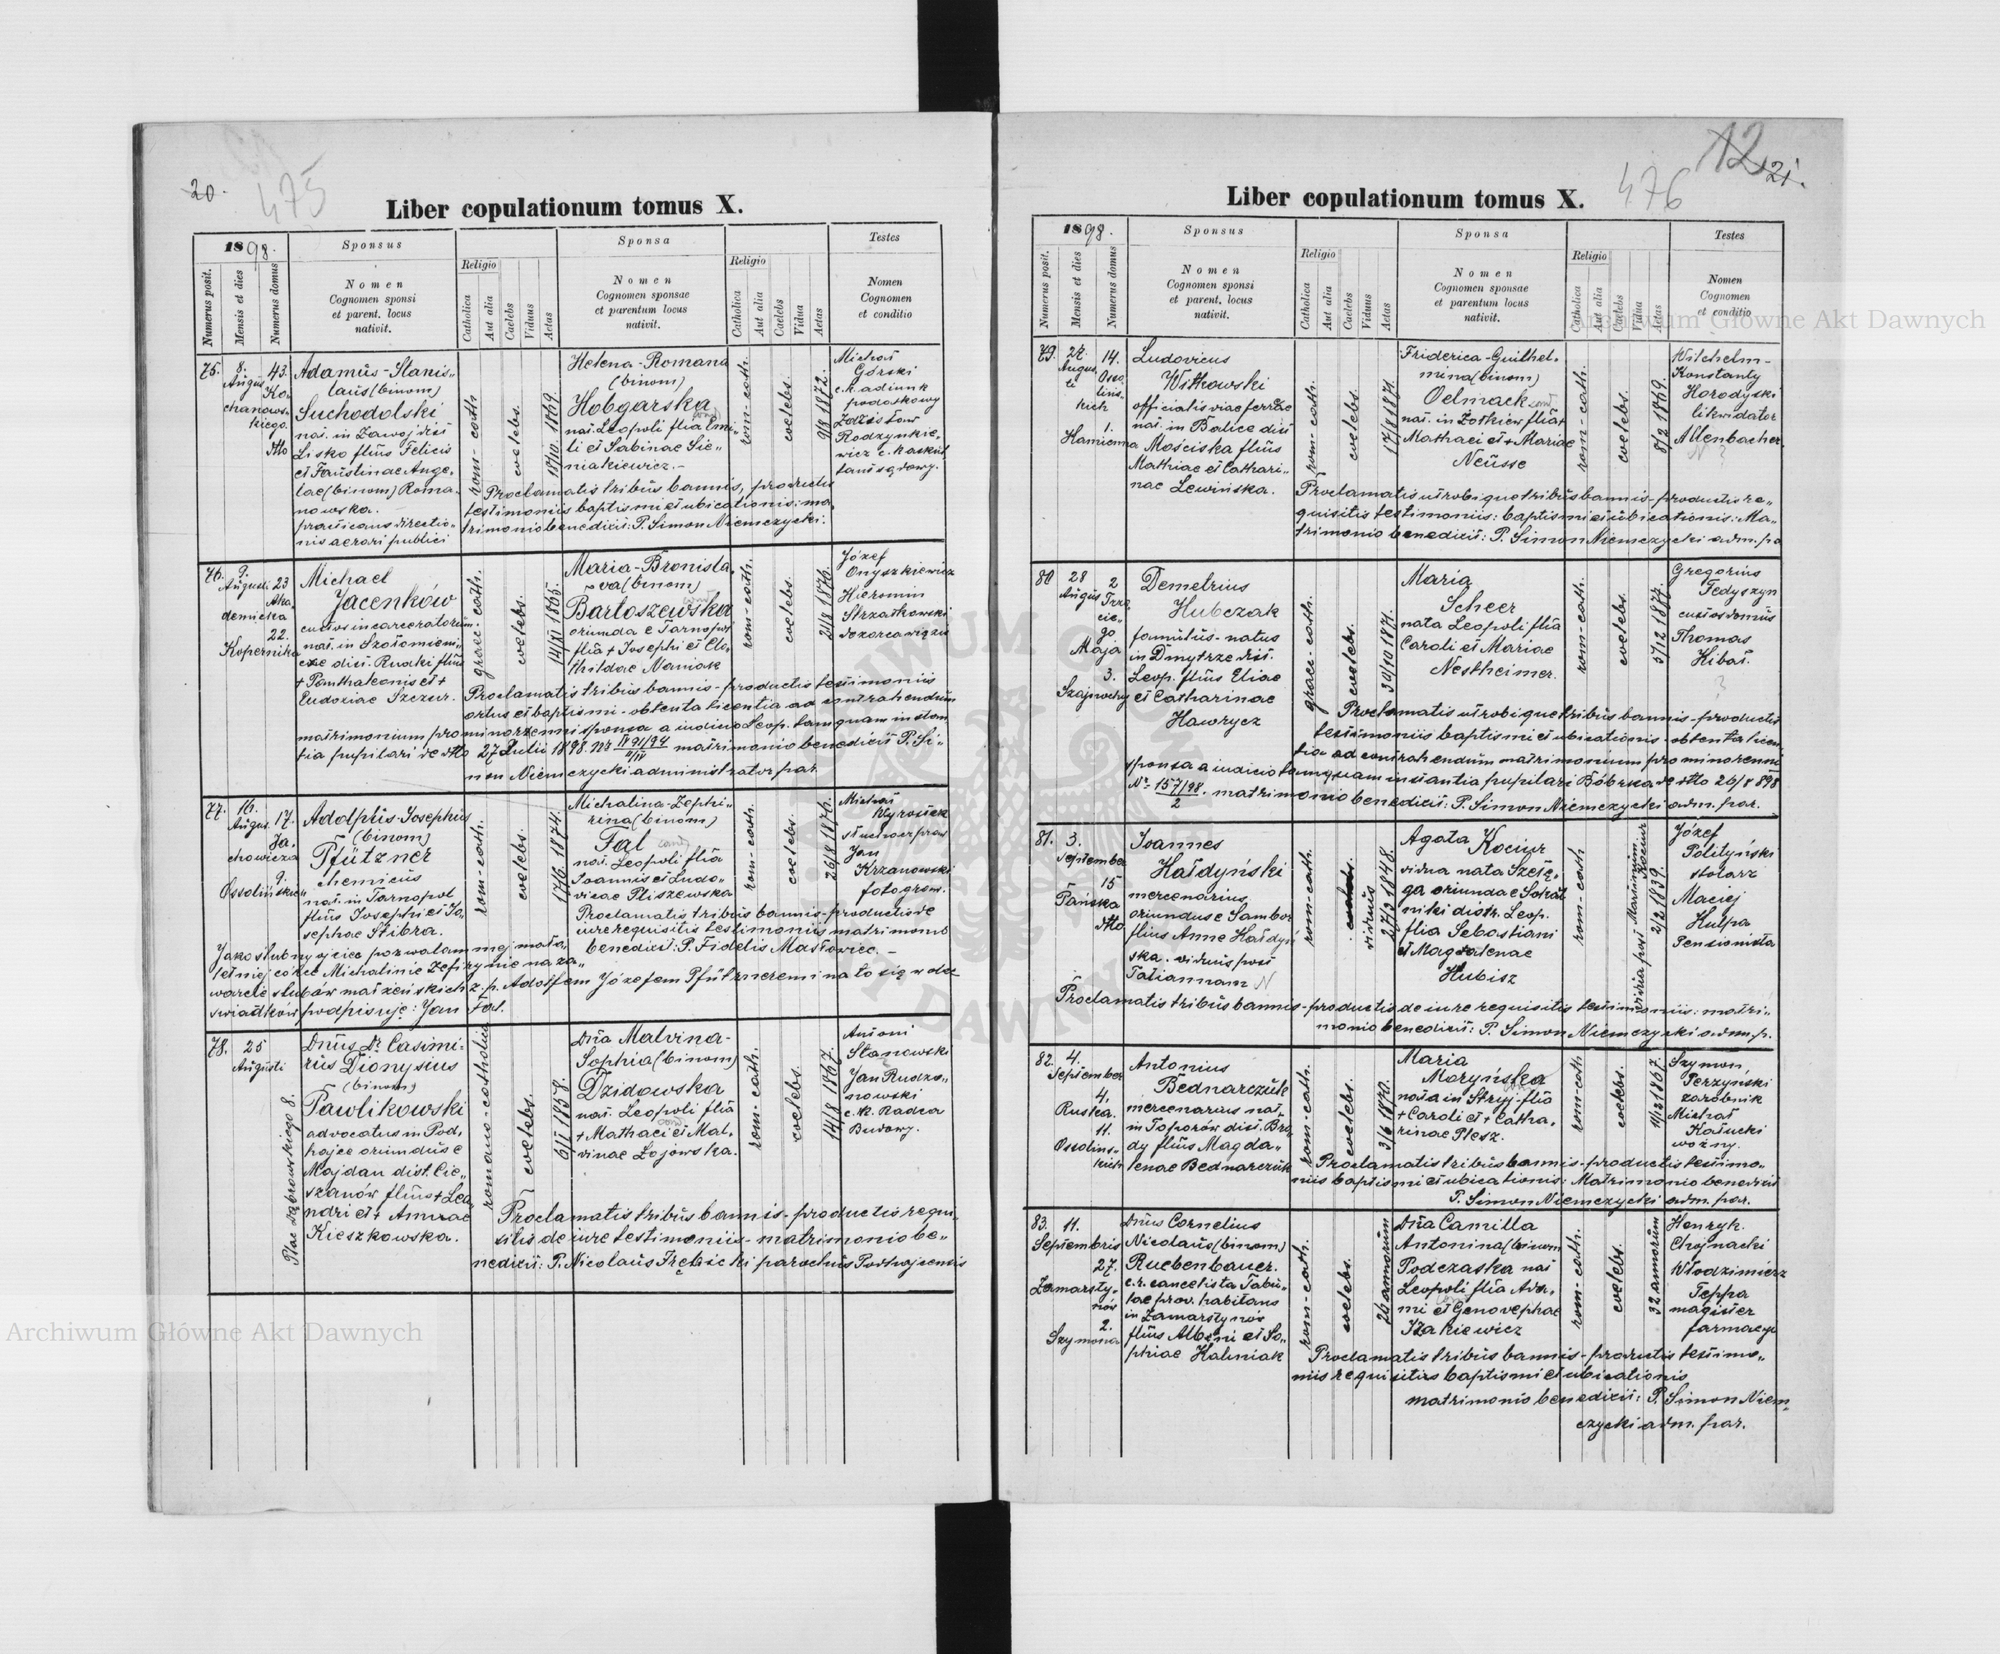 20.
475
Liber copulationum tomus X.
1898.
Sponsus
Sponsa
Testes
Religio
Religio
Numerus posit.
Mensis et dies
Numerus domus
Nomen
Cognomen sponsi
et parent. locus
nativit.
Catholica
Aut alia
Caelebs
Viduus
Aetas
Nomen
Cognomen sponsae
et parentum locus
nativit.
Catholica
Aut alia
Caelebs
Vidua
Aetas
Nomen
Cognomen
et conditio
75.
8.
Augusti
43.
Kochanowskiego.
dtto
Adamus-Stanis„
laus (binom)
Suchodolski
nat. in Zawoj dist
Lisko filius Felicis
et Faustinae Ange„
lae (binom) Roma„
nowska.
practicans directio„
nis aerari publici
rom-cath.
coelebs.
18/10. 1869.
Helena-Romana
(binom)
Hobgarska
nat. Leopoli filia Emi„
li et Sabinae Sie„
niakiewicz.-
rom-cath.
coelebs.
9/8 1872.
Michał
Górski
c.k. adiunk
podatkowy
Zdzisław
Rodzynkie„
wicz c.k. auskul
tant sądowy.
Proclamatis tribus bannis, productis
testimoniis baptismi et ubicationis: ma„
trimonio benedixit: P. Simon Niemczycki.
76.
9.
Augusti
23
Aka„
demicka
22.
Kopernika
Michael
Jacenków
custos incarceratorum.
nat. in Szołomieni„
cze dist. Rudki filius
+ Panthaleonis et +
Eudoxiae Szczur.
graec.-cath.
coelebs.
14/XI 1865.
Maria-Bronisla„
va (binom)
Bartoszewska
oriunda e Tarnopol
filia + Josephi et Clo„
thildae Maniak
rom-cath.
coelebs.
21/8 1876.
Józef
Onyszkiewicz
Hieronim
Strzałkowski
dozorca więzień
Proclamatis tribus bannis-productis testimoniis
ortus et baptismi-obtenta licentia ad contrahendum
matrimonium pro minorenni sponsa a iudicio Leop. tamquam instan
tia pupilari de dtto 27 Julii 1898. Nr IV 91/94 2/IV matrimonio benedixit P. Si„
mon Niemczycki administrator par.
77.
16.
Augus.
17.
Ja„
chowicza
9.
Ossolińskich
Adolphus-Josephus
(binom)
Pfützner
chemicus
nat. in Tarnopol
filius Josephi et Jo„
sephae Stibra.
rom-cath.
coelebs.
17/6 1874.
Michalina-Zephi„
rina (binom)
Fal
nat. Leopoli filia
Joannis et Ludo„
vicae Pliszewska
rom-cath.
coelebs.
26/8 1876.
Michał
Wyrostek
słuchacz praw
Jan
Krzanowski
fotogram.
Proclamatis tribus bannis-productis de
iure requisitis testimoniis matrimonio
benedixit: P. Fidelis Masłowiec.-
Jako ślubny ojciec pozwalam mej mało„
letniej córce Michalinie Zefirynie na za„
warcie ślubów małżeńskich z p. Adolfem Józefem Pfütznerem i na to się w obec
świadków podpisuję: Jan Fal.
78.
25
Augusti
Plac Dąbrowskiego 8.
Dnus Dr Casimi„
rus Dionysius
(binom)
Pawlikowski
advocatus in Pod„
hajce oriundus e
Majdan dist. Cie„
szanów filius + Lea„
ndri et + Annae
Kieszkowska.
romano-catholica
coelebs.
6/II 1858.
Dna Malvina-
Sophia (binom)
Dzidowska
nat. Leopoli filia
+ Mathaei et Mal„
vinae Łojowska.
rom-cath.
coelebs.
14/8 1867.
Antoni
Stanowski
Jan Rudzo„
nowski
c.k. Radca
Budowy.
Proclamatis tribus bannis-productis requi„
sitis de iure testimoniis-matrimonio be„
nedixit: P. Nicolaus Trębicki parochus Podhajcensis
12
21.
476
Liber copulationum tomus X.
1898.
Sponsus
Sponsa
Testes
Religio
Religio
Numerus posit.
Mensis et dies
Numerus domus
Nomen
Cognomen sponsi
et parent. locus
nativit.
Catholica
Aut alia
Caelebs
Viduus
Aetas
Nomen
Cognomen sponsae
et parentum locus
nativit.
Catholica
Aut alia
Caelebs
Vidua
Aetas
Nomen
Cognomen
et conditio
79.
27.
Augus„
ti
14.
Osso„
lińs„
kich
1.
Kamienna
Ludovicus
Witkowski
officialis viae ferreae
nat. in Balice dist
Mościska filius
Mathiae et Cathari„
nae Lewińska.
rom-cath.
coelebs
17/8 1871.
Friderica-Guilhel„
mina (binom)
Oelmack
nat. in Żołkiew filia
Mathaei et + Mariae
Neusse
rom-cath.
coelebs.
8/2 1869.
Wilchelm-
Konstanty
Horodyski
likwidator
Altenbacher
N ?
Proclamatis utrobique tribus bannis-productis re„
quisitis testimoniis: baptismi et ubicationis: Ma„
trimonio benedixit: P. Simon Niemczycki adm. pa
80
28
Augus
2
Trze„
cie„
go
Maja
3.
Szajnochy
Demetrius
Hubczak
famulus-natus
in Dmytrze dist.
Leop. filius Eliae
et Catharinae
Hawrycz
graec.-cath.
coelebs.
30/10 1871.
Maria
Scheer
nata Leopoli filia
Caroli et Mariae
Nestheimer.
rom-cath.
coelebs.
5/12 1877.
Gregorius
Fedyszyn
custos domus
Thomas
Kibał.
?
Proclamatis utrobique tribus bannis-productis
testimoniis baptismi et ubicationis-obtenta licen„
tia ad contrahendum matrimonium pro minorenni
sponsa a iudicio tamquam instantia pupilari Bóbrka de dtto 26/8 898
Nr. 157/98 2. matrimonio benedixit: P. Simon Niemczycki adm. par.
81.
3.
September
15
Pańska
dtto
Joannes
Hałdyński
mercenarius
oriundus e Sambor
filius Annae Hałdyń
ska. viduus post
Tatiannam N
rom-cath.
coelebs.
viduus
27/3 1848.
Agata Kociur
vidua nata Szelę„
ga oriunda e Sokol
niki distr. Leop.
filia Sebastiani
et Magdalenae
Hubisz
rom-cath
vidua post Martinum.
Kociur
2/2 1839.
Józef
Polityński
stolarz
Maciej
Hulpa
Pensionista
Proclamatis tribus bannis-productis de iure requisitis testimoniis: matri„
monio benedixit: P. Simon Niemczycki adm. p.
82.
4.
September
4,
Ruska.
11.
Ossolińs„
kich
Antonius
Bednarczuk
mercenarius nat.
in Toporów dist. Bro„
dy filius Magda„
lenae Bednarczuk
rom-cath.
coelebs.
3/6 1870.
Maria
Moryńska
nata in Stryj-filia
+ Caroli et + Catha„
rinae Plesz.
rom-cath
coelebs.
11/12 1867.
Szymon
Perzyński
zarobnik
Michał
Kałucki
woźny.
Proclamatis tribus bannis-productis testimo„
niis baptismi et ubicationis: Matrimonio benedixit
P. Simon Niemczycki adm. par.
83.
11.
Septembris
27.
Zamarsty„
nów
2.
Szymona
Dnus Cornelius
Nicolaus (binom)
Ruebenbauer.
c.r. cancelista Tabu„
lae prov. habitans
in Zamarstynow
filius Albini et So„
phiae Kaliniak
rom-cath.
coelebs.
26 annorum
Dna Camilla
Antonina (binom
Podczaska nat
Leopoli filia Ada„
mi et Genovephae
Izakiewicz
rom-cath.
coelebs.
32 annorum
Henryk
Chojnacki
Włodzimierz
Teppa
magister
farmacyi
Proclamatis tribus bannis-productis testimo„
niis requisitis baptismi et ubicationis
matrimonio benedixit: P. Simon Niem„
czycki adm. par.
Archiwum Główne Akt Dawnych
Archiwum Główne Akt Dawnych